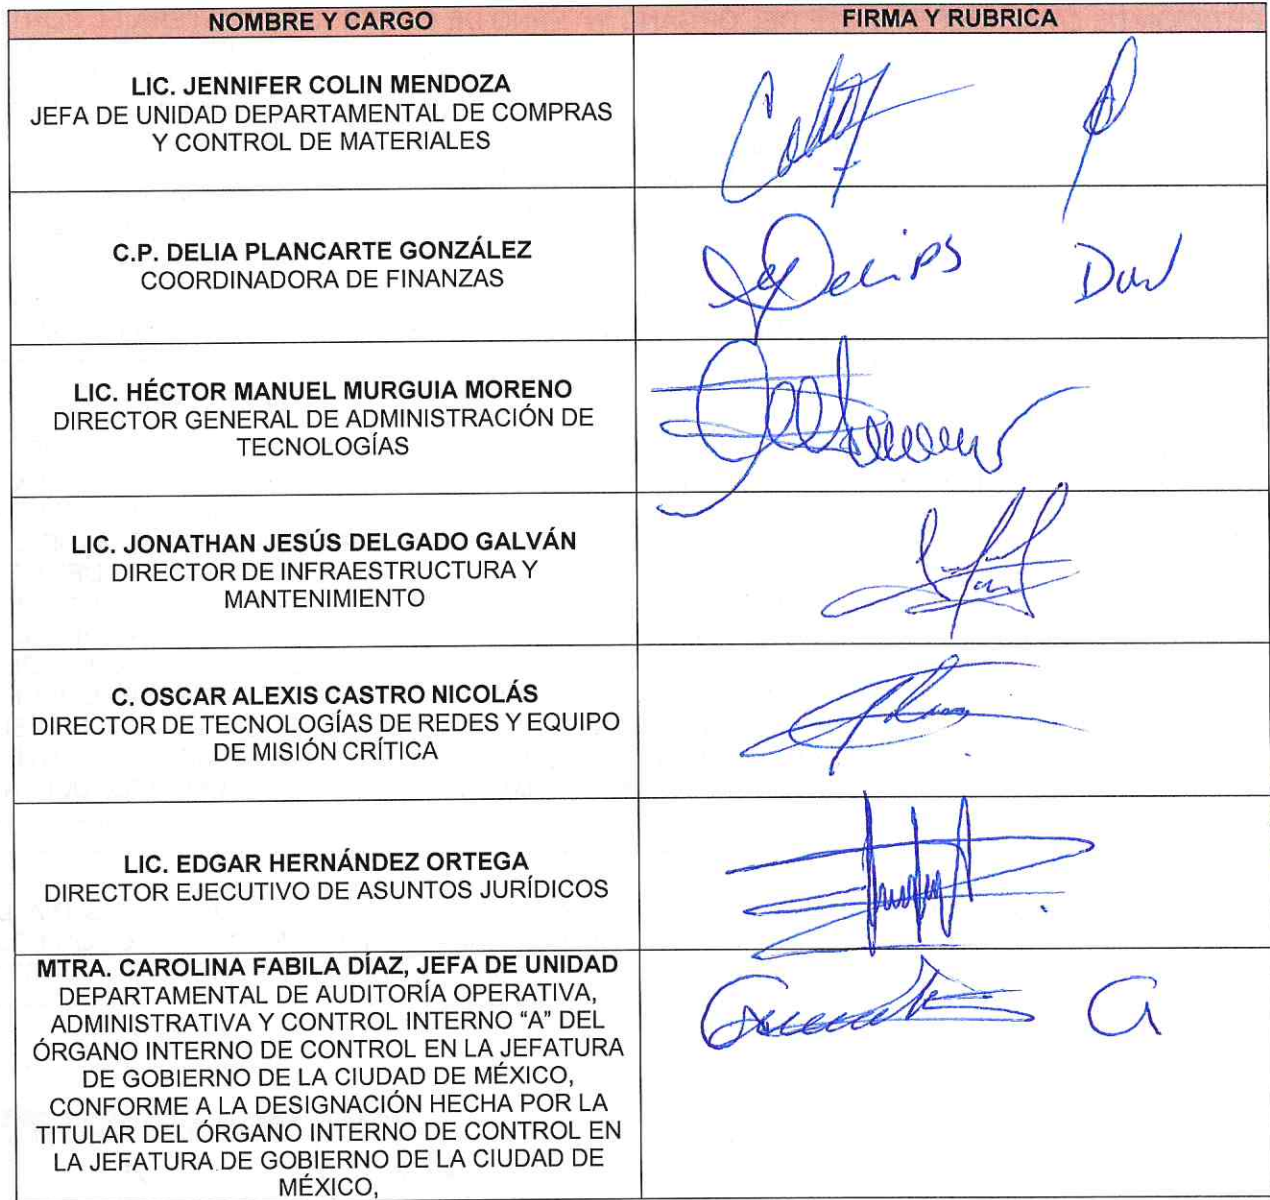 NOMBRE Y CARGO
FIRMA Y RUBRICA
LIC. JENNIFER COLIN MENDOZA
JEFA DE UNIDAD DEPARTAMENTAL DE COMPRAS
Y CONTROL DE MATERIALES
C.P. DELIA PLANCARTE GONZÁLEZ
COORDINADORA DE FINANZAS
LIC. HÉCTOR MANUEL MURGUIA MORENO
DIRECTOR GENERAL DE ADMINISTRACIÓN DE
TECNOLOGÍAS
LIC. JONATHAN JESÚS DELGADO GALVÁN
DIRECTOR DE INFRAESTRUCTURA Y
MANTENIMIENTO
C. OSCAR ALEXIS CASTRO NICOLÁS
DIRECTOR DE TECNOLOGÍAS DE REDES Y EQUIPO
DE MISIÓN CRÍTICA
LIC. EDGAR HERNÁNDEZ ORTEGA
DIRECTOR EJECUTIVO DE ASUNTOS JURÍDICOS
MTRA. CAROLINA FABILA DÍAZ, JEFA DE UNIDAD
DEPARTAMENTAL DE AUDITORÍA OPERATIVA,
ADMINISTRATIVA Y CONTROL INTERNO “A” DEL
ÓRGANO INTERNO DE CONTROL EN LA JEFATURA
DE GOBIERNO DE LA CIUDAD DE MÉXICO,
CONFORME A LA DESIGNACIÓN HECHA POR LA
TITULAR DEL ÓRGANO INTERNO DE CONTROL EN
LA JEFATURA DE GOBIERNO DE LA CIUDAD DE
MÉXICO,